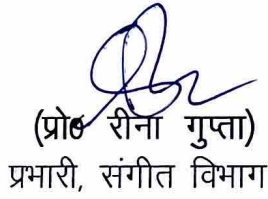 (प्रो० रीना गुप्ता)
प्रभारी, संगीत विभाग